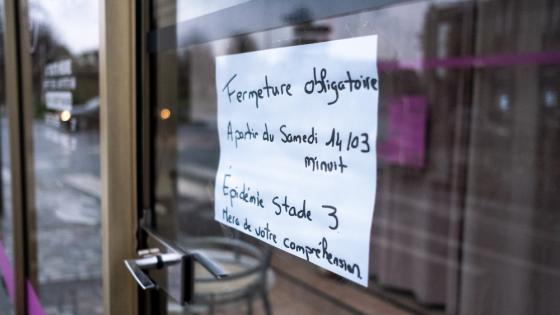 Fermeture obligatoire
A partir du Samedi 14/03
minuit
Épidémie Stade 3
Merci de votre compréhension